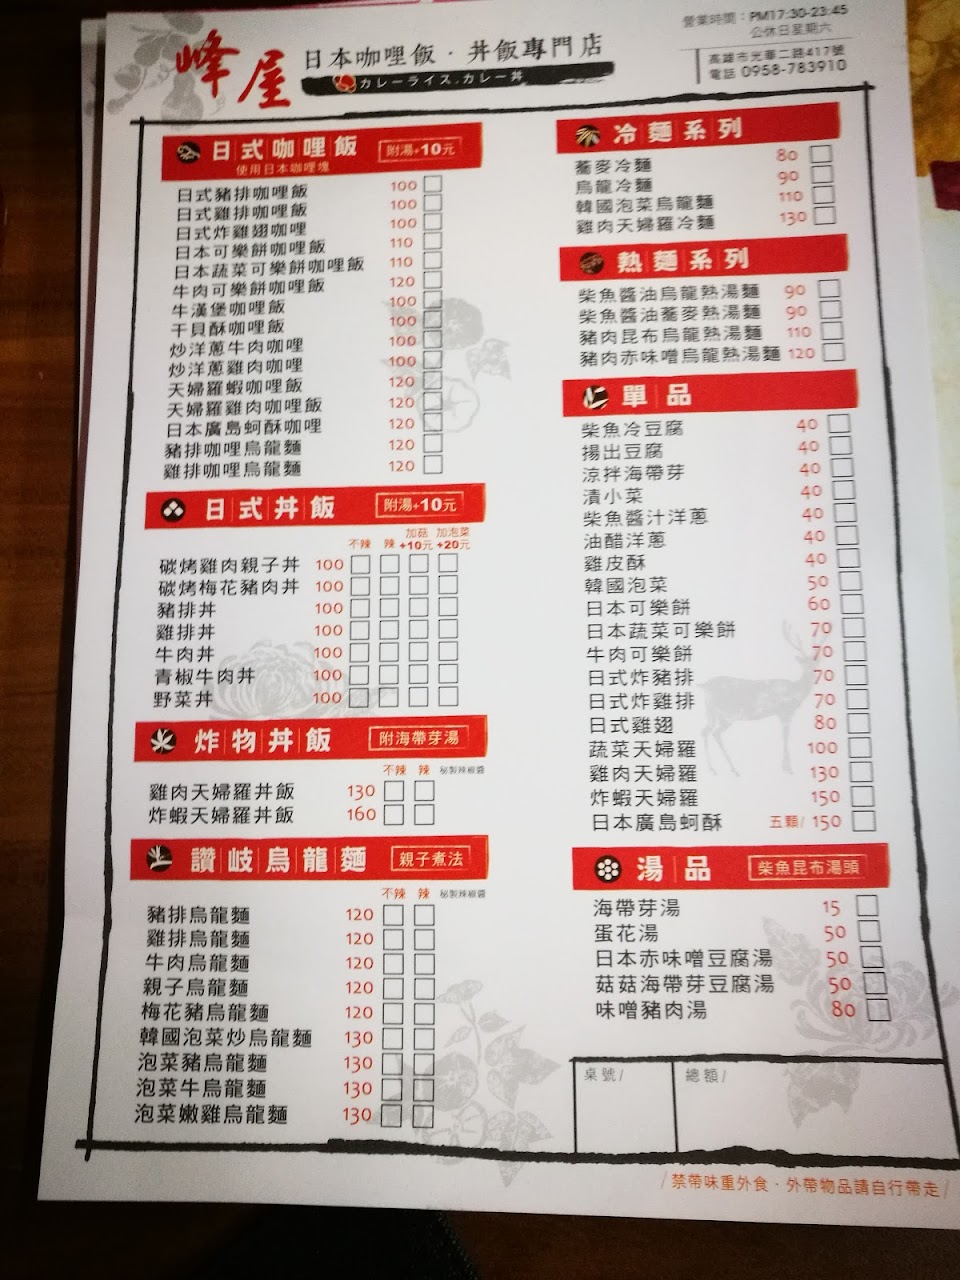 峰屋
日本咖哩飯·丼飯專門店
カレーライス.カレー丼
營業時間：PM17:30-23:45
公休日星期六
高雄市光華二路417號
電話 0958-783910
日式咖哩飯 附湯+10元
使用日本咖哩塊
日式豬排咖哩飯 100
日式雞排咖哩飯 100
日式炸雞翅咖哩 100
日本可樂餅咖哩飯 110
日本蔬菜可樂餅咖哩飯 110
牛肉可樂餅咖哩飯 120
牛漢堡咖哩飯 100
干貝酥咖哩飯 100
炒洋蔥牛肉咖哩 100
炒洋蔥雞肉咖哩 100
天婦羅蝦咖哩飯 120
天婦羅雞肉咖哩飯 120
日本廣島蚵酥咖哩 120
豬排咖哩烏龍麵 120
雞排咖哩烏龍麵 120
日式丼飯 附湯+10元
不辣 辣 加菇+10元 加泡菜+20元
碳烤雞肉親子丼 100
碳烤梅花豬肉丼 100
豬排丼 100
雞排丼 100
牛肉丼 100
青椒牛肉丼 100
野菜丼 100
炸物丼飯 附海帶芽湯
不辣 辣 秘製辣椒醬
雞肉天婦羅丼飯 130
炸蝦天婦羅丼飯 160
讚岐烏龍麵 親子煮法
不辣 辣 秘製辣椒醬
豬排烏龍麵 120
雞排烏龍麵 120
牛肉烏龍麵 120
親子烏龍麵 120
梅花豬烏龍麵 120
韓國泡菜炒烏龍麵 130
泡菜豬烏龍麵 130
泡菜牛烏龍麵 130
泡菜嫩雞烏龍麵 130
冷麵系列
蕎麥冷麵 80
烏龍冷麵 90
韓國泡菜烏龍麵 110
雞肉天婦羅冷麵 130
熱麵系列
柴魚醬油烏龍熱湯麵 90
柴魚醬油蕎麥熱湯麵 90
豬肉昆布烏龍熱湯麵 110
豬肉赤味噌烏龍熱湯麵 120
單品
柴魚冷豆腐 40
揚出豆腐 40
涼拌海帶芽 40
漬小菜 40
柴魚醬汁洋蔥 40
油醋洋蔥 40
雞皮酥 40
韓國泡菜 50
日本可樂餅 60
日本蔬菜可樂餅 70
牛肉可樂餅 70
日式炸豬排 70
日式炸雞排 70
日式雞翅 80
蔬菜天婦羅 100
雞肉天婦羅 130
炸蝦天婦羅 150
日本廣島蚵酥 五顆/ 150
湯品 柴魚昆布湯頭
海帶芽湯 15
蛋花湯 50
日本赤味噌豆腐湯 50
菇菇海帶芽豆腐湯 50
味噌豬肉湯 80
桌號/ 總額/
/禁帶味重外食·外帶物品請自行帶走/